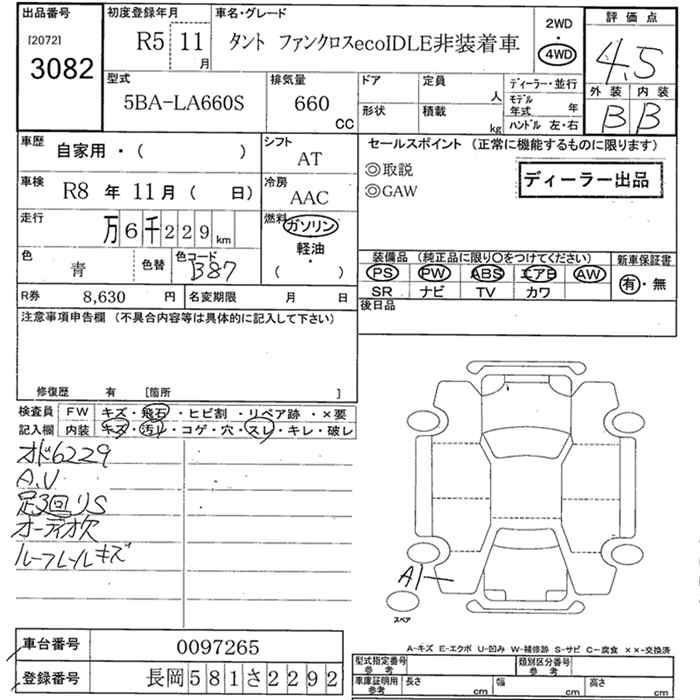 出品番号 初度登録年月 車名・グレード 2WD ・ 4WD 評価点
[2072] R5 11月 タント ファンクロスecoIDLE非装着車 4.5
3082 型式 排気量 ドア 定員 人 ディーラー・並行 外装 内装
5BA-LA660S 660 CC 形状 積載 kg モデル年式 年 B B
ハンドル 左・右
車歴 自家用・( ) シフト AT セールスポイント (正常に機能するものに限ります)
◎取説 ディーラー出品
車検 R8 年 11月 ( 日) 冷房 AAC ◎GAW
走行 万6千229km 燃料 ガソリン
軽油・( )
色 青 色替 色コード B87 装備品 (純正品に限り〇をつけてください) 新車保証書
PS PW ABS エアB AW 有・無
R券 8,630 円 名変期限 月 日 SR ナビ TV カワ
注意事項申告欄 (不具合内容等は具体的に記入して下さい) 後日品
修復歴 有 [箇所 ]
検査員 FW キズ・飛石・ヒビ割・リペア跡・×要
記入欄 内装 キズ・汚レ・コゲ・穴・スレ・キレ・破レ
オド6229
A,U
足3回リS
オーディオ欠
ルーフレールキズ
A1
スペア
A-キズ E-エクボ U-凹み W-補修跡 S-サビ C-腐食 ××-交換済
車台番号 0097265 型式指定番号 参考 類別区分番号 参考
登録番号 長岡581さ2292 車庫証明用 参考 長さ cm 幅 cm 高さ cm